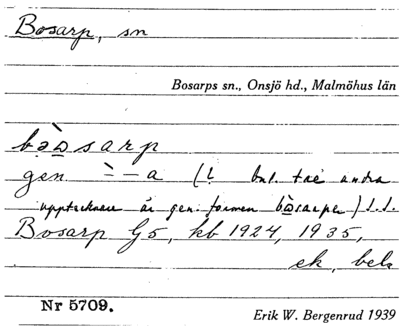 Bosarp, sn
Bosarps sn., Onsjö hd., Malmöhus län
bə̀ɒ̱sarp
gen ⸺̀ – a (! enl. tre andra
upptecknare är gen. formen bɒ̱̀sarpes) s.s.
Bosarp G5, kb 1924, 1935,
ek, bek
Nr 5709.
Erik W. Bergenrud 1939